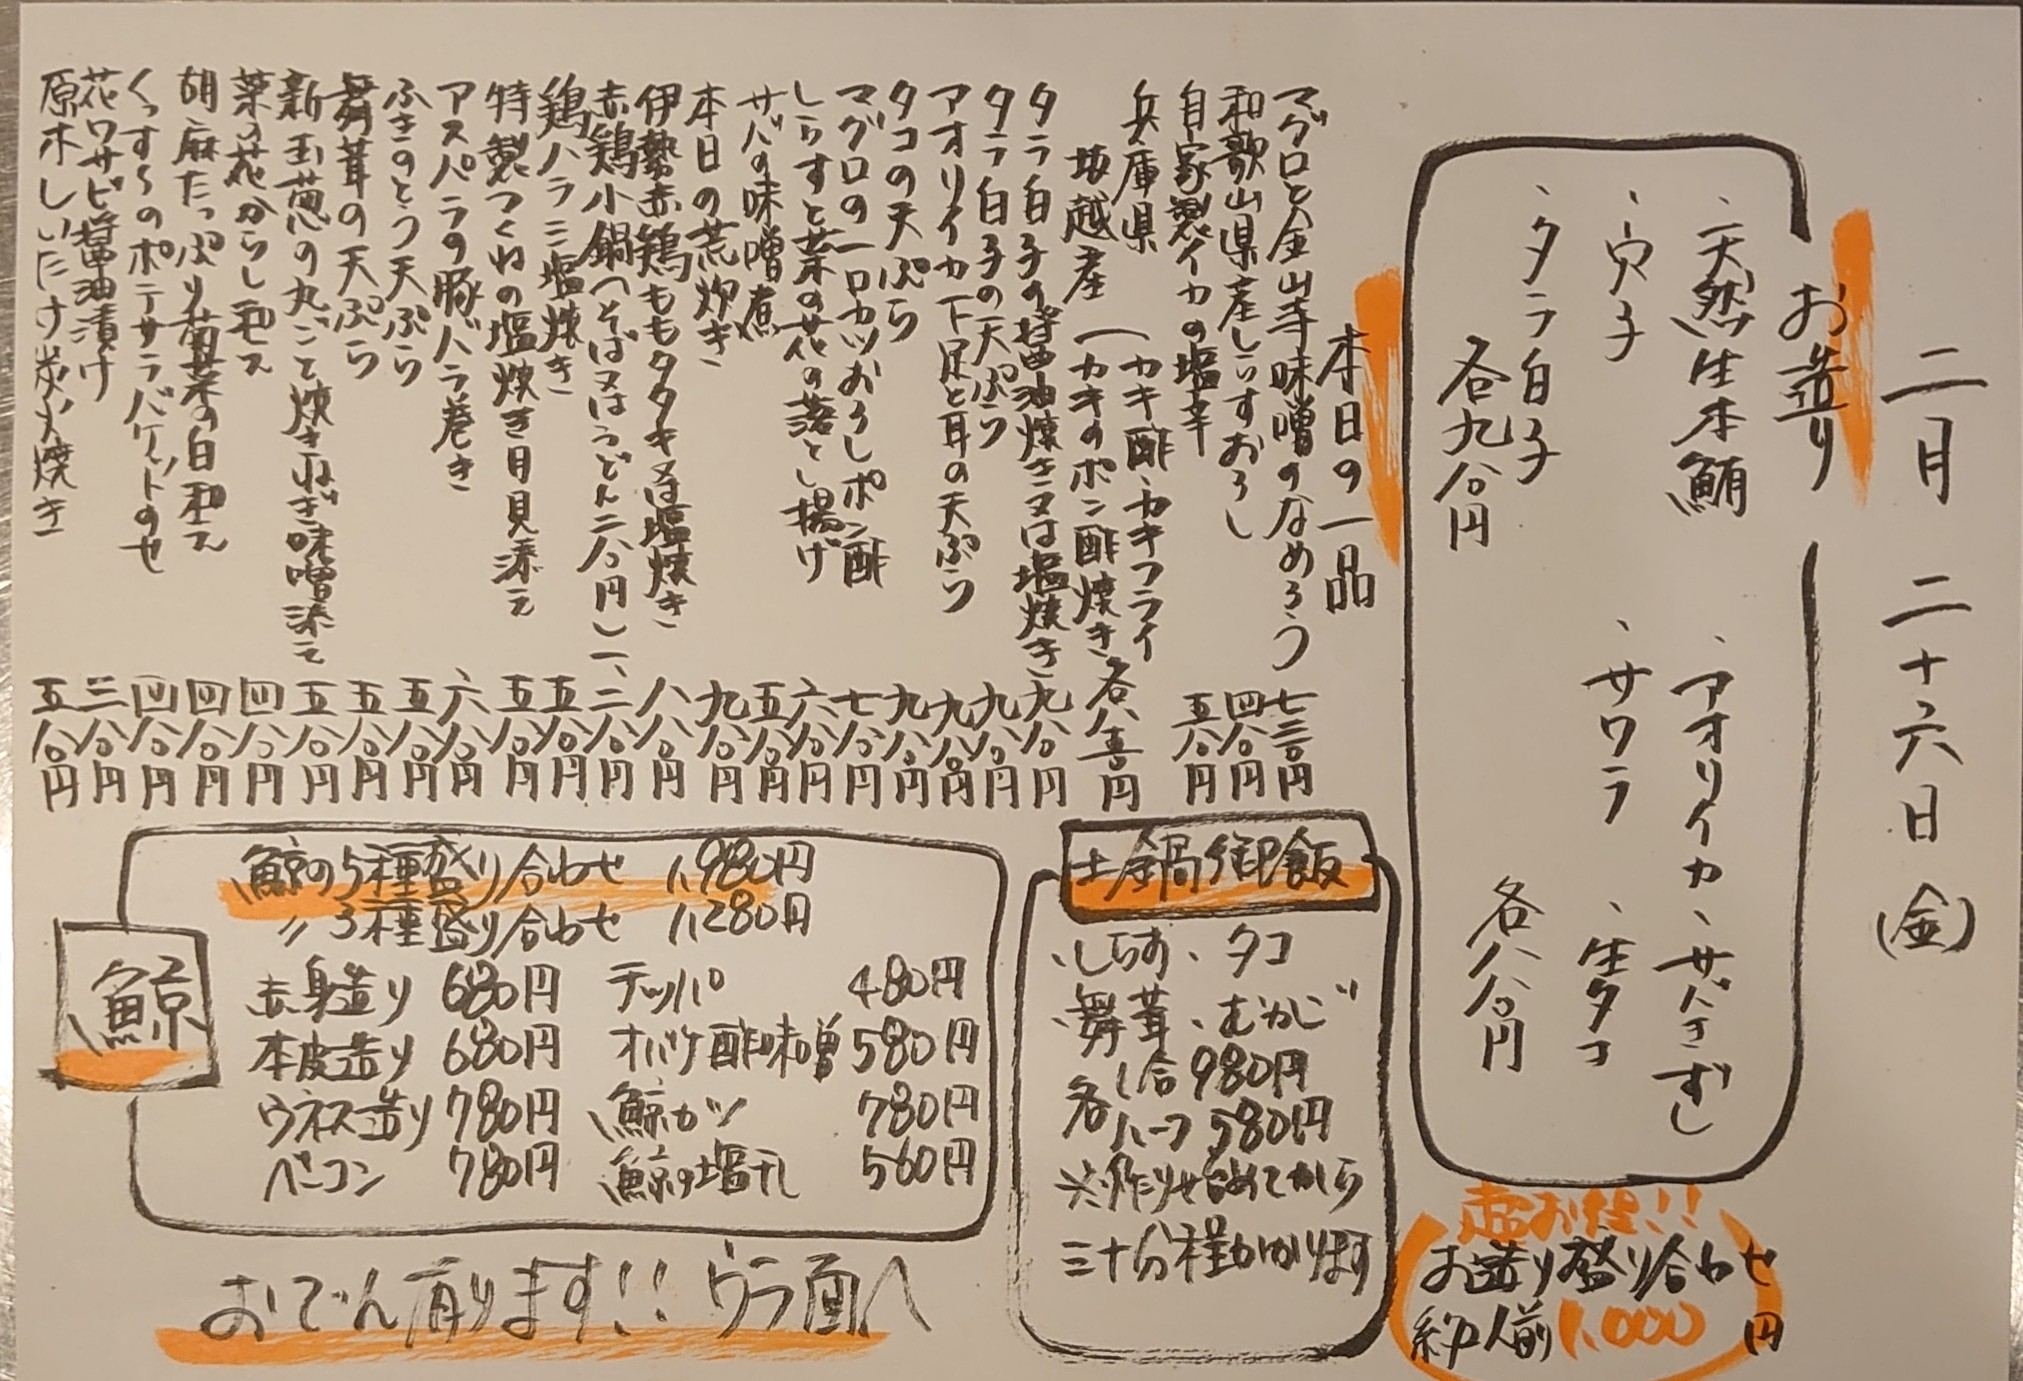 二月二十六日(金)
お造り
、天然生本鮪
、アオリイカ、サバきずし
、穴子
、サワラ、生タコ
、タラ白子
各九八〇円
各八八〇円
超お得!!
お造り盛り合わせ
約一人前1,000円
本日の一品
マグロと金山寺味噌のなめろう 七三〇円
和歌山県産しらすおろし 四八〇円
自家製イカの塩辛 五八〇円
兵庫県
坂越産
(カキ酢、カキフライ
(カキのポン酢焼き 各八三〇円
タラ白子の醤油焼き又は塩焼き 九八〇円
タラ白子の天ぷら 九八〇円
アオリイカ下足と耳の天ぷら 九八〇円
タコの天ぷら 九八〇円
マグロの一口カツおろしポン酢 七八〇円
しらすと菜の花の落とし揚げ 六八〇円
サバの味噌煮 五八〇円
本日の荒炊き 九八〇円
伊勢赤鶏ももタタキ又は塩焼き 八八〇円
赤鶏小鍋(そば又はうどん二八〇円) 一、二八〇円
鶏ハラミ塩焼き 五八〇円
特製つくねの塩焼き月見添え 五八〇円
アスパラの豚バラ巻き 六八〇円
ふきのとう天ぷら 五八〇円
舞茸の天ぷら 五八〇円
新玉葱の丸ごと焼きねぎ味噌添え 五八〇円
菜の花からし和え 四八〇円
胡麻たっぷり菊菜の白和え 四八〇円
くっすくのポテサラバケットのせ 四八〇円
花ワサビ醤油漬け 三八〇円
原木しいたけ炭火焼き 五八〇円
土鍋御飯
、しらす、タコ
、舞茸、むかご
各1合980円
ハーフ580円
※作りせ始めてから
三十分程かかります
鯨
鯨の5種盛り合わせ 1,980円
〃3種盛り合わせ 1,280円
赤身造り 680円 テッパ 480円
本皮造り 680円 オバケ酢味噌 580円
ウネス造り 780円 鯨カツ 780円
ベーコン 780円 鯨の塩干し 560円
おでん有ります!!ウラ面へ